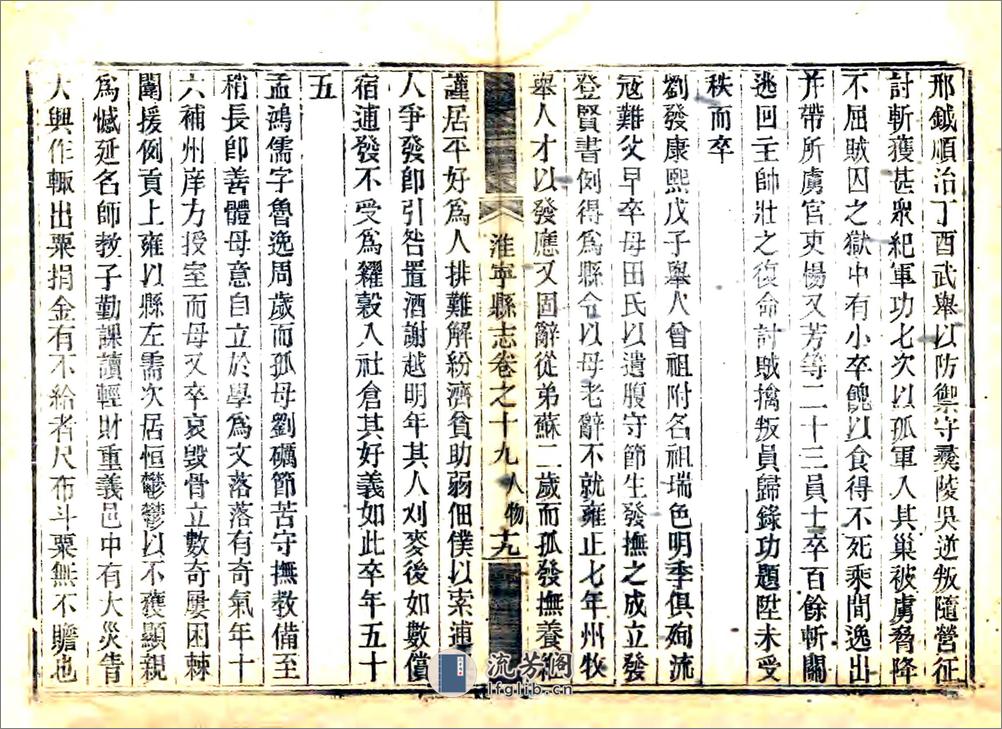 邢鉞順治丁酉武舉以防禦守彝陵吳逆叛隨營征
討斬獲甚衆紀軍功七次以孤軍入其巢被虜脅降
不屈賊囚之獄中有小卒餽以食得不死乘間逸出
并帶所虜官吏楊文芳等二十三員士卒百餘斬關
逃回主帥壯之復命討賊擒叛員歸錄功題陞未受
秩而卒
劉發康熙戊子舉人曾祖附名祖瑞色明季俱殉流
寇難父早卒母田氏以遺腹守節生發撫之成立發
登賢書例得為縣令以母老辭不就雍正七年州牧
舉人才以發應又固辭從弟蘇二歲而孤發撫養維
淮寧縣志卷之十九 人物 十九
謹居平好為人排難解紛濟貧助弱佃僕以索逋與
人爭發卽引咎置酒謝越明年其人刈麥後如數償
宿逋發不受為糴穀入社倉其好義如此卒年五十
五
孟鴻儒字魯逸周歲而孤母劉礪節苦守撫教備至
稍長卽善體母意自立於學為文落落有奇氣年十
六補州庠方授室而母又卒哀毀骨立數奇屢困棘
闈援例貢上雍以縣左需次居恒鬱鬱以不獲顯親
為憾延名師教子勤課讀輕財重義邑中有大災眚
大興作輒出粟捐金有不給者尺布斗粟無不贍也
流芳閣
lfglib.cn